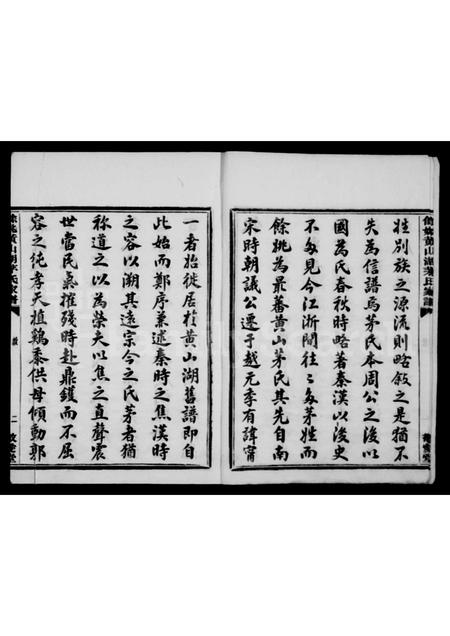 餘姚黄山湖茅氏宗譜
姓別族之源流則略敘之是猶不
失為信譜焉茅氏本周公之後以
國為氏春秋時略著秦漢以後史
不多見今江浙閩往〻多茅姓而
餘姚為最蕃黄山茅氏其先自南
宋時朝議公遷于越元季有諱甯
一者抬徙居於黄山湖舊譜即自
此始而鄭序兼述秦時之焦漢時
之容以溯其遠宗今之氏茅者猶
稱道之為榮夫以焦之直聲震
世當民氣摧殘時赴鼎鑊而不屈
容之純孝天植鷄黍供母傾動郭
餘姚黄山湖茅氏宗譜
敘
二